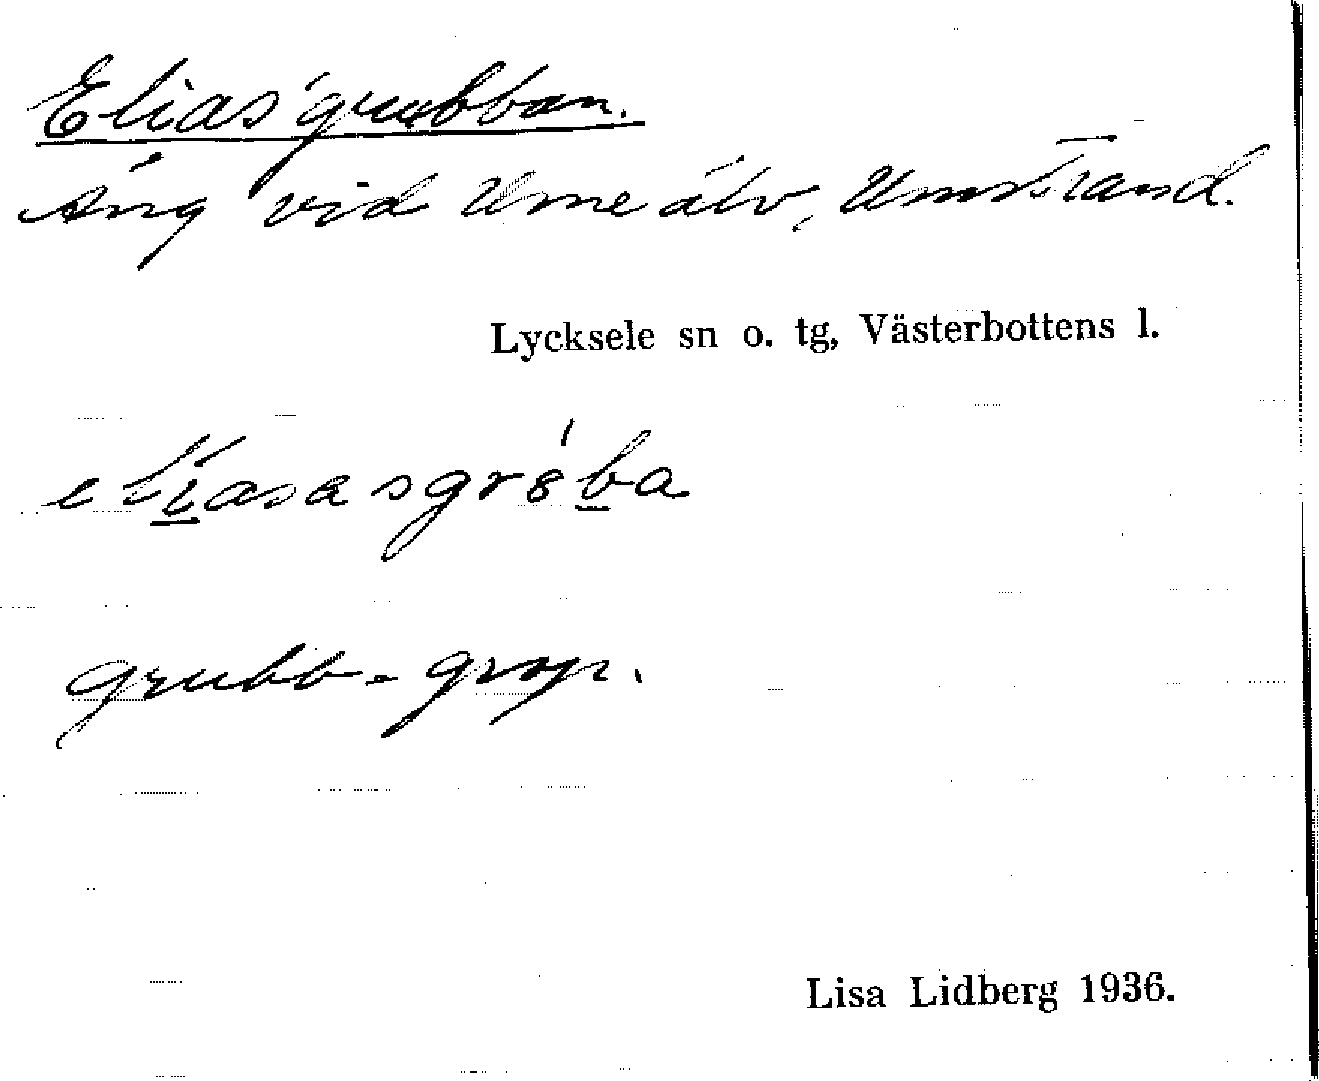 Elias'grubban.
Äng vid Ume älv, Umstrand.
Lycksele sn o. tg, Västerbottens l.
elíasasgr8́ba
grubb = grop.
Lisa Lidberg 1936.